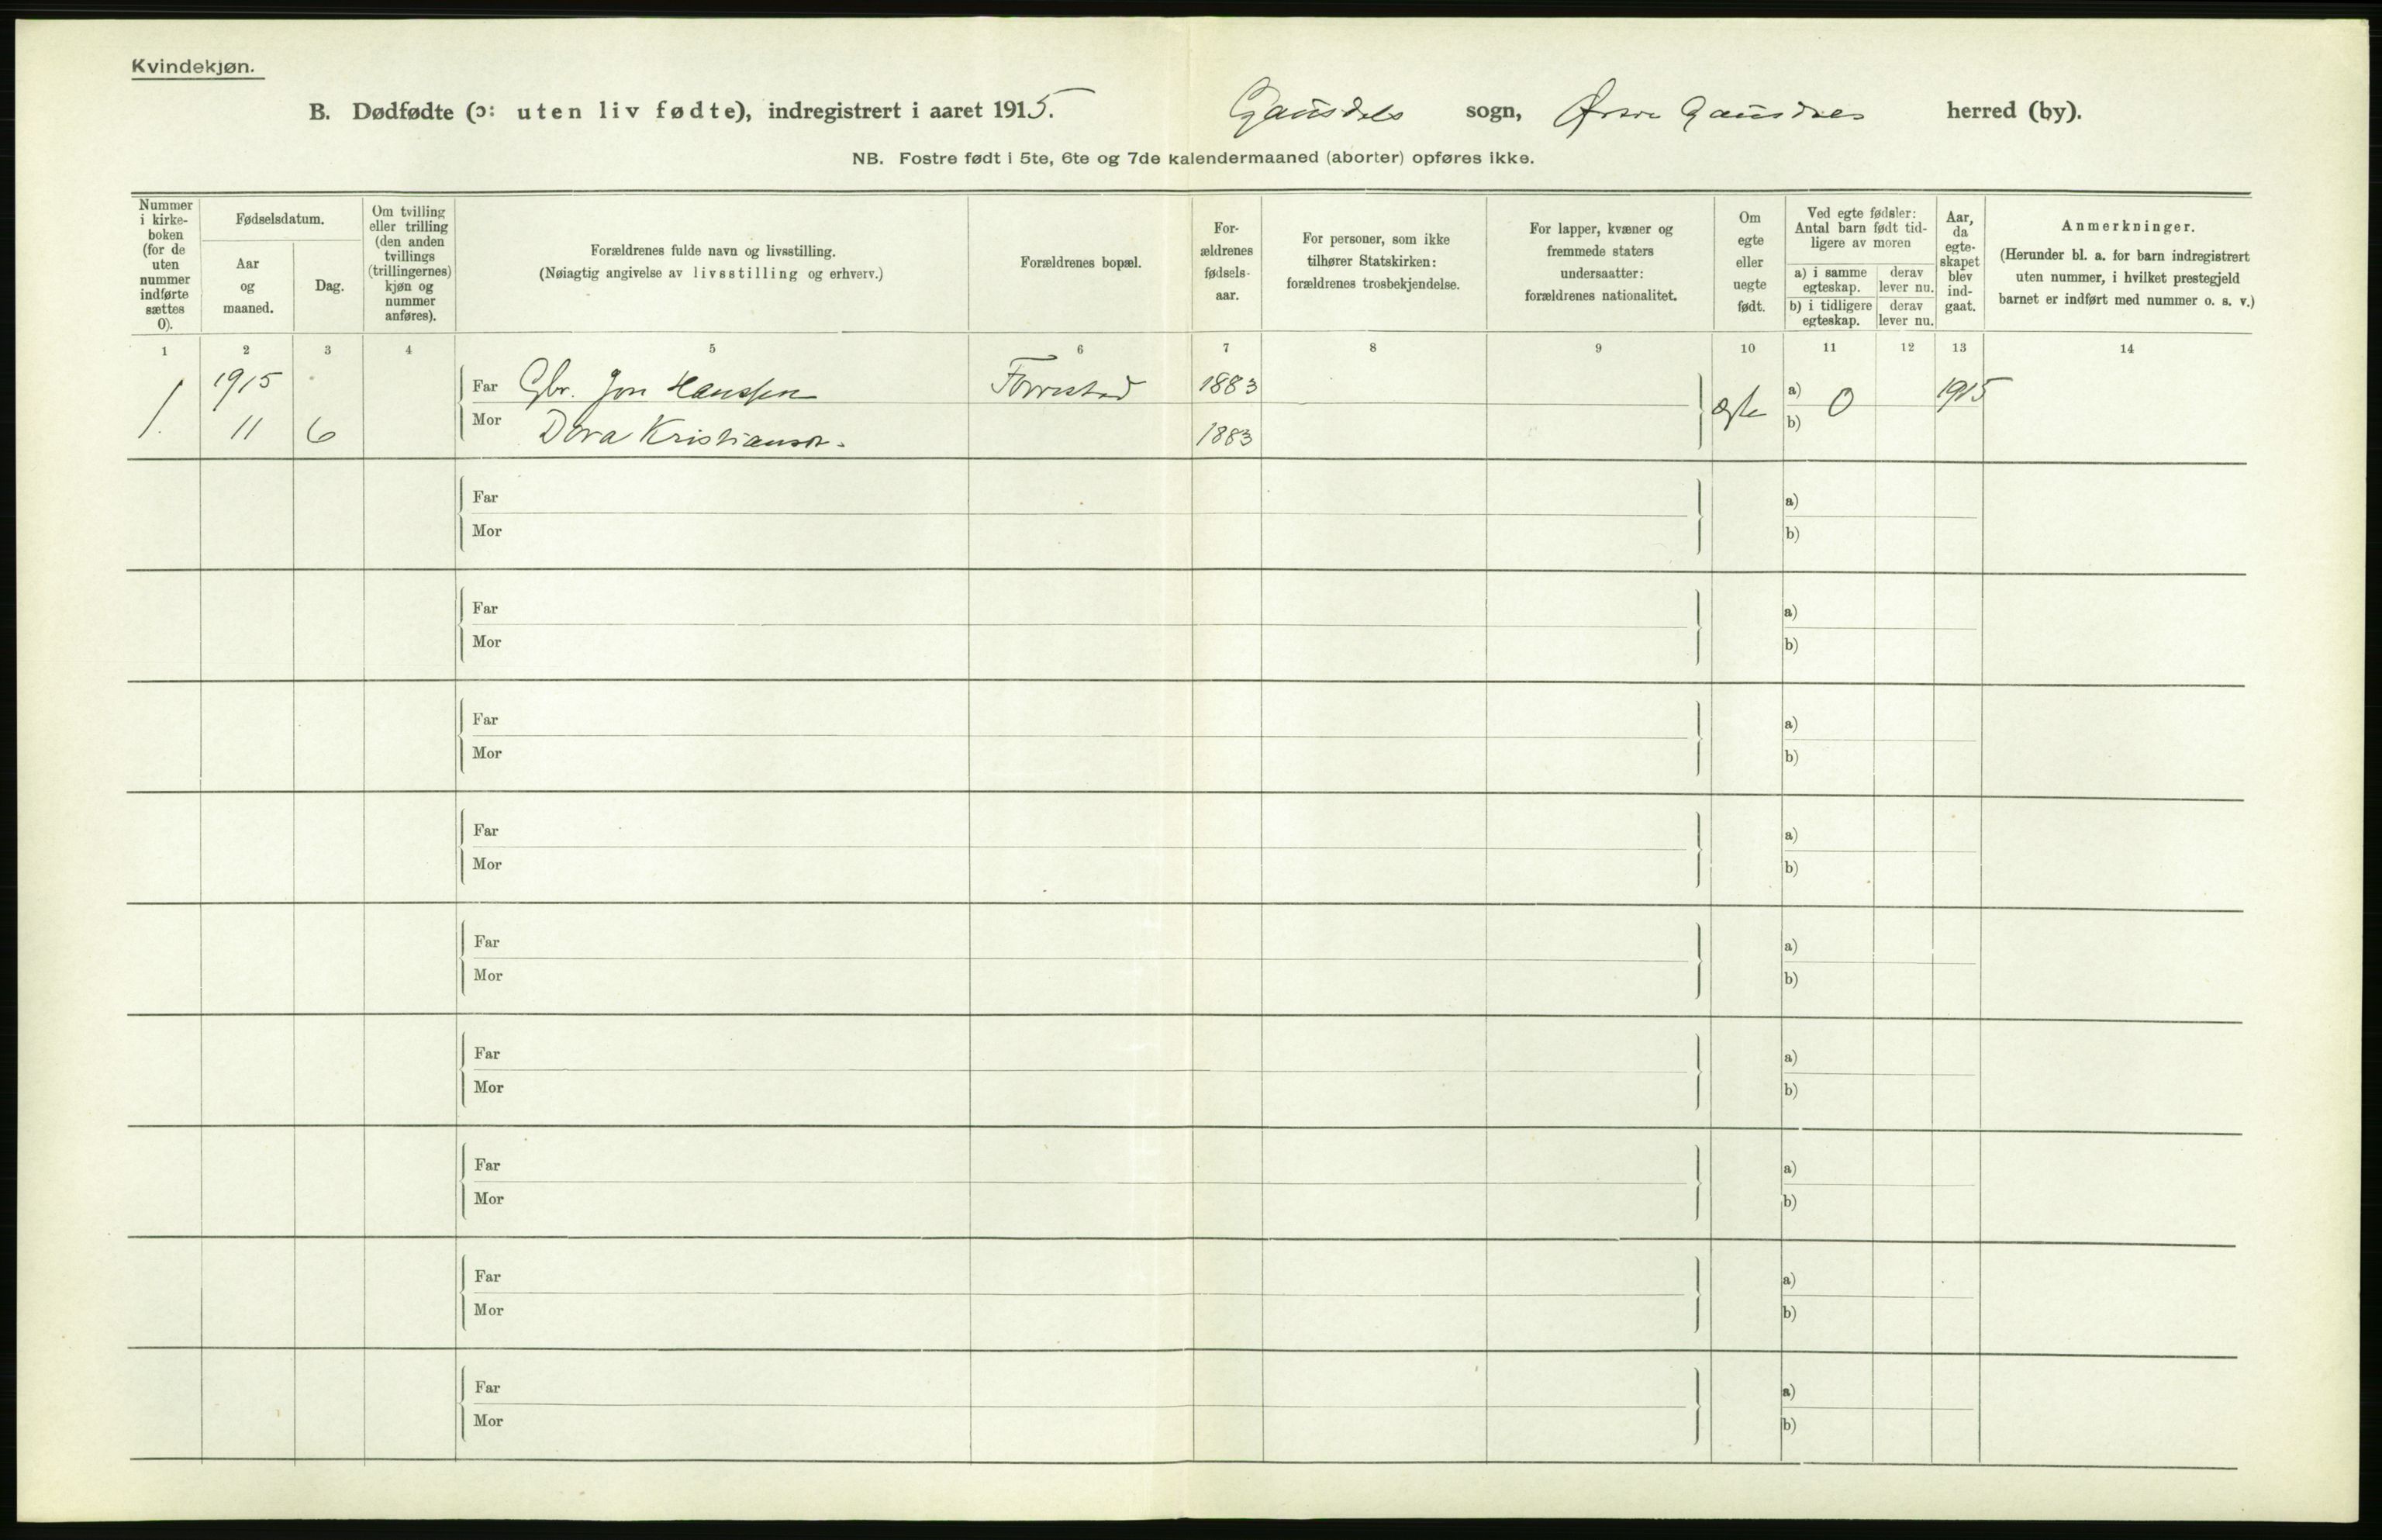 Kvindekjøn.
B. Dødfødte (ɔ: uten liv fødte), indregistrert i aaret 1915. Gausdals sogn, Østre Gausdals herred (by).
NB. Fostre født i 5te, 6te og 7de kalendermaaned (aborter) opføres ikke.
Nummer i kirke-boken (for de uten nummer indførte sættes 0).
Fødselsdatum.
Aar og maaned.
Dag.
Om tvilling eller trilling (den anden tvillings (trillingernes) kjøn og nummer anføres).
Forældrenes fulde navn og livsstilling.
(Nøiagtig angivelse av livsstilling og erhverv.)
Forældrenes bopæl.
For-ældrenes fødsels-aar.
For personer, som ikke tilhører Statskirken: forældrenes trosbekjendelse.
For lapper, kvæner og fremmede staters undersaatter: forældrenes nationalitet.
Om egte eller uegte født.
Ved egte fødsler: Antal barn født tid-ligere av moren
a) i samme egteskap.
derav lever nu.
b) i tidligere egteskap.
derav lever nu.
Aar, da egte-skapet blev ind-gaat.
Anmerkninger.
(Herunder bl. a. for barn indregistrert uten nummer, i hvilket prestegjeld barnet er indført med nummer o. s. v.)
1 2 3 4 5 6 7 8 9 10 11 12 13 14
1915 Far Gbr. Jon Hanssen 1883 a) 1915
1. 11 6 Mor Dora Kristiansdr. 1883 egte b) 0
Far a)
Mor b)
Far a)
Mor b)
Far a)
Mor b)
Far a)
Mor b)
Far a)
Mor b)
Far a)
Mor b)
Far a)
Mor b)
Far a)
Mor b)
Far a)
Mor b)